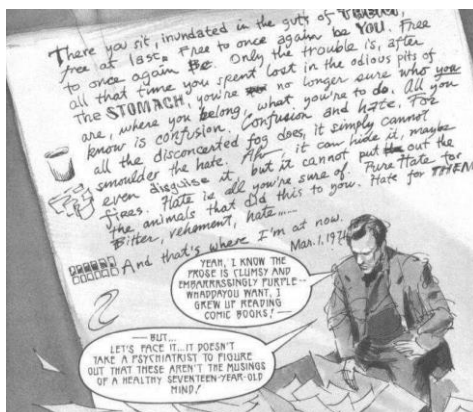 There you sit, inundated in the guts of
free at last. Free to once again be YOU. Free
to once again BE. Only the trouble is, after
all that time you spent lost in the odious pits of
the STOMACH, you're no longer sure who you
are, where you belong, what you're to do. All you
know is confusion. Confusion and hate. For
all the disconcerted fog does, it simply cannot
smoulder the hate. Ah, it can hide it, maybe
even disguise it, but it cannot put out the
fires. Hate is all you're sure of. Pure Hate for
the animals that did this to you. Hate for THEM!
Bitter, vehement, hate.....
And that's where I'm at now.
Mar. 1, 1974
YEAH, I KNOW THE
PROSE IS CLUMSY AND
EMBARRASSINGLY PURPLE--
WHADDAYOU WANT, I
GREW UP READING
COMIC BOOKS! --
-- BUT...
LET'S FACE IT... IT DOESN'T
TAKE A PSYCHIATRIST TO FIGURE
OUT THAT THESE AREN'T THE MUSINGS
OF A HEALTHY SEVENTEEN-YEAR-OLD
MIND!